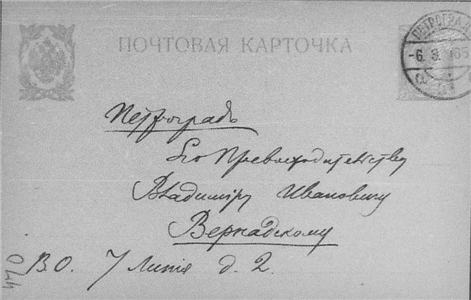 ПОЧТОВАЯ КАРТОЧКА
ПЕТРОГРАД
-6. 3.
Петроградъ
Его Превосходительству
Владиміру Ивановичу
Вернадскому
В.О. 7 Линія д. 2.